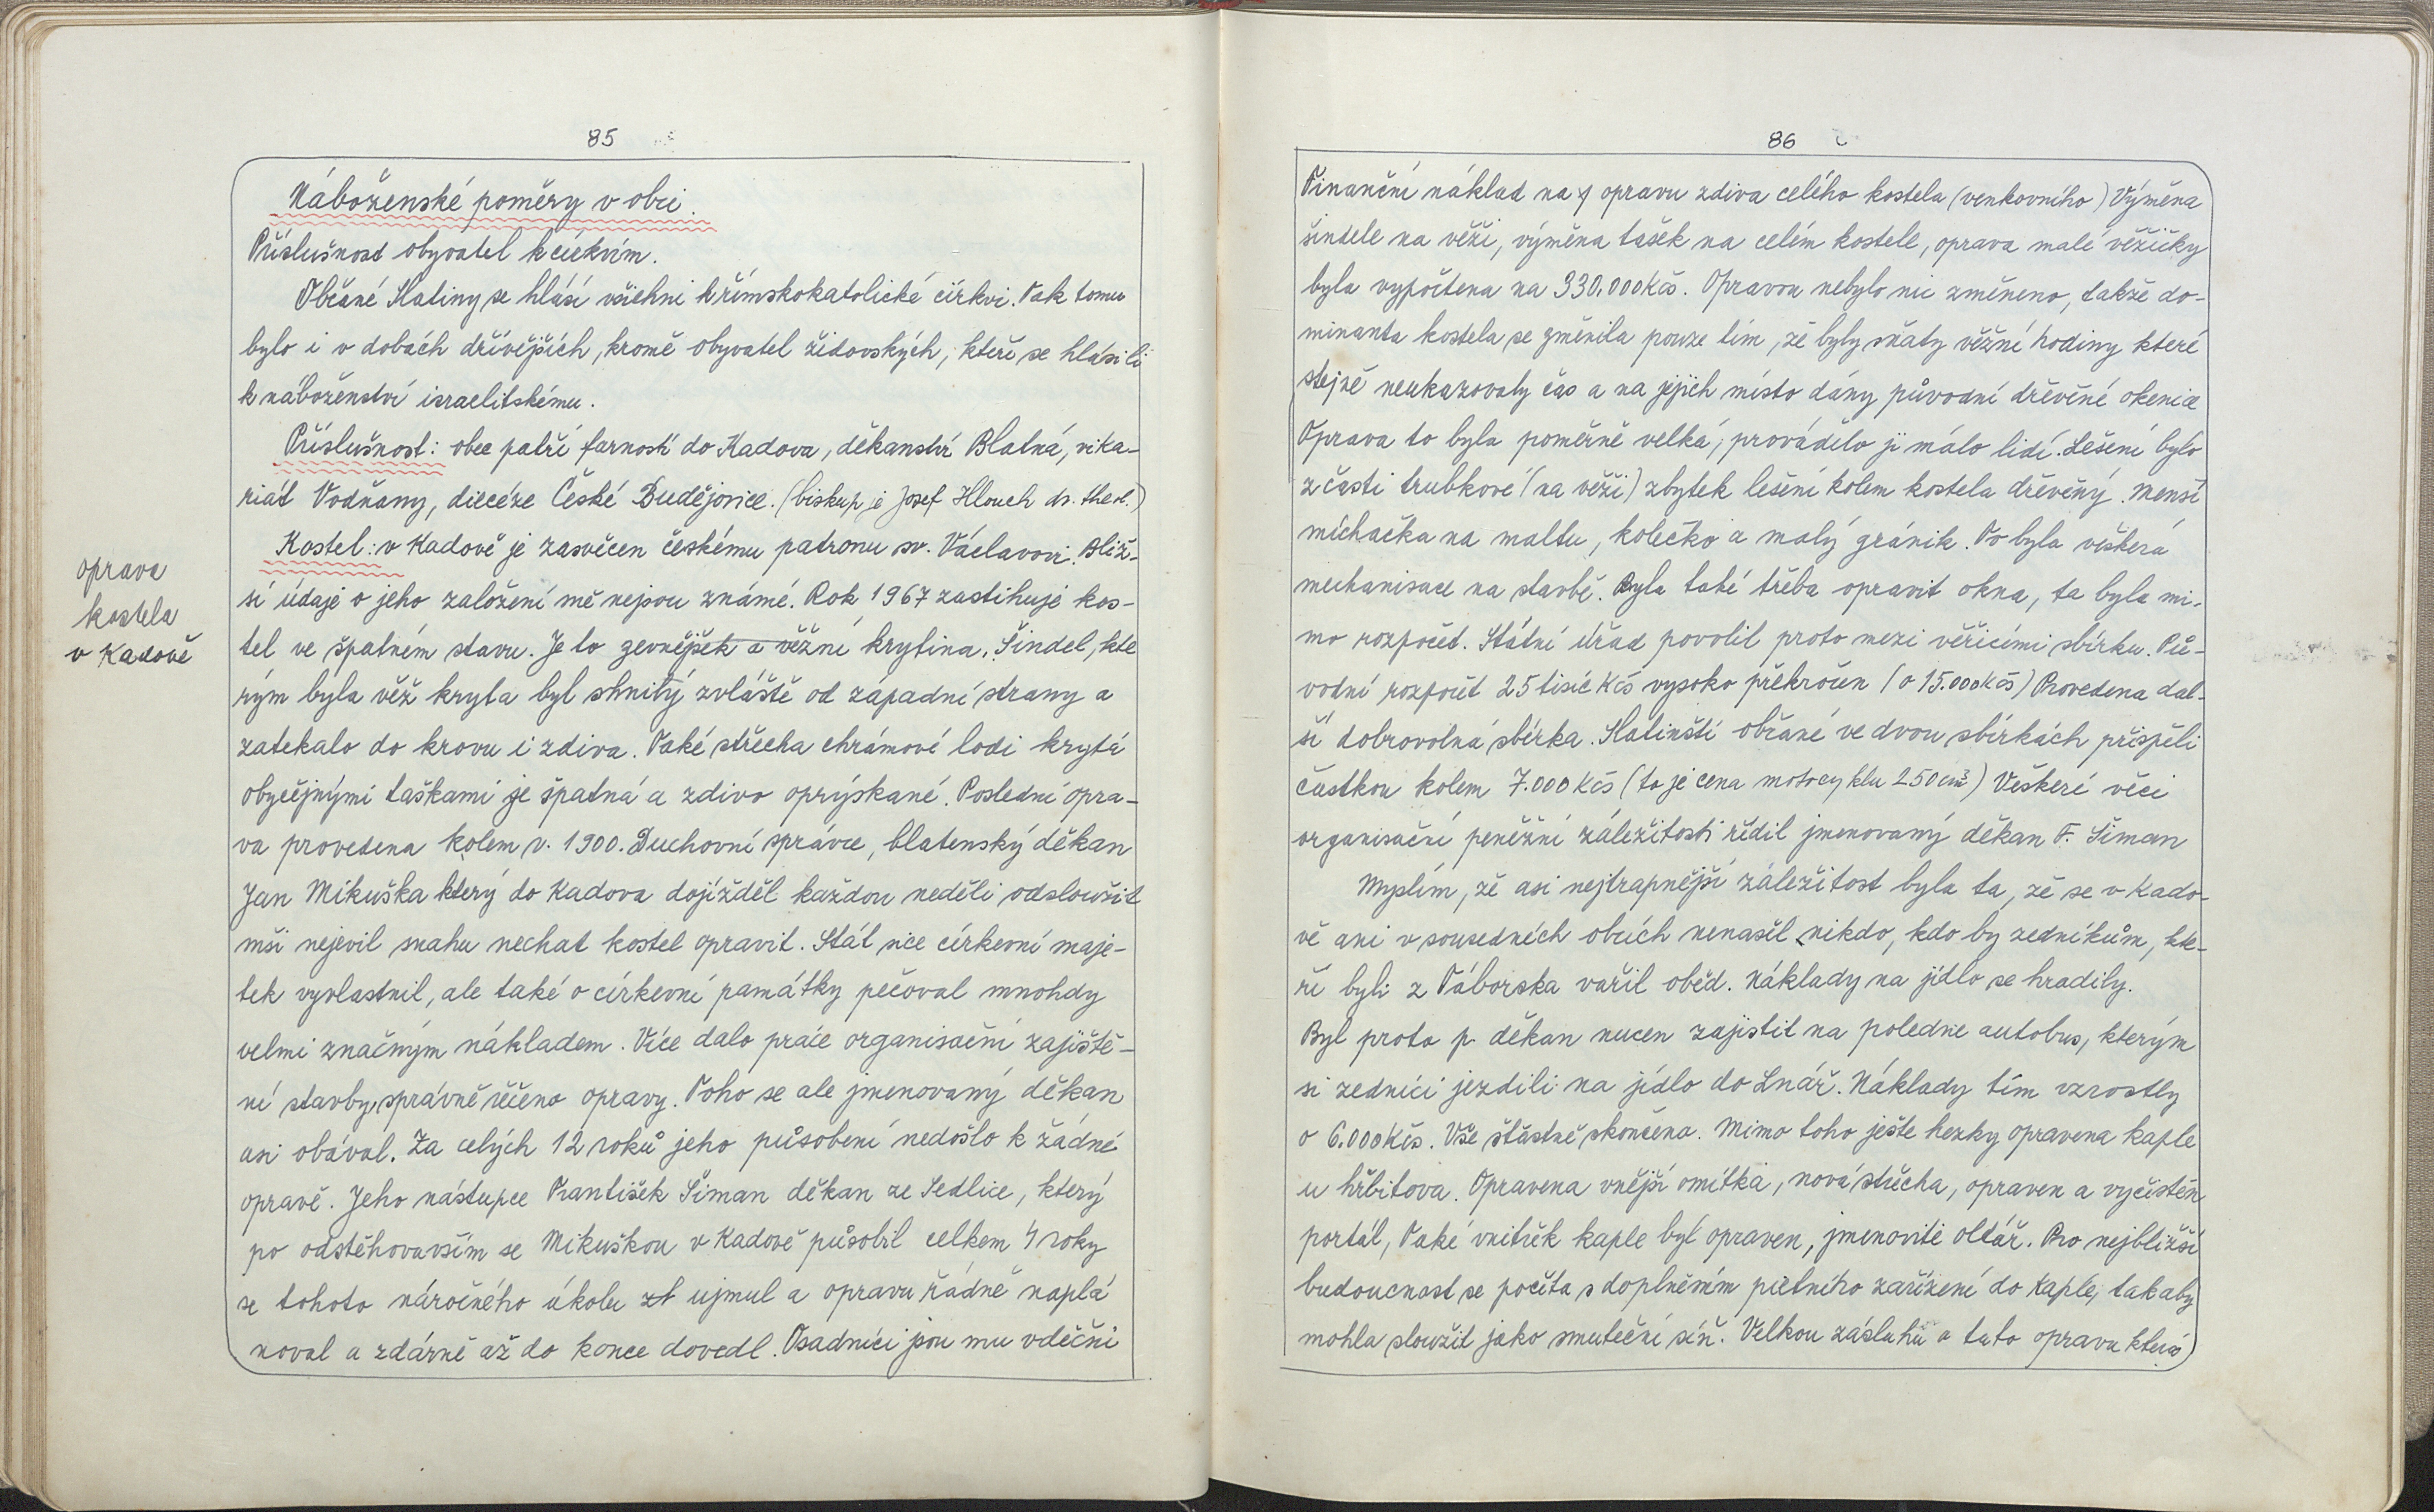 85
Náboženské poměry v obci.
Příslušnost obyvatel k církvím.
Občané Slatiny se hlásí všichni k římskokatolické církvi. Tak tomu
bylo i v dobách dřívějších, kromě obyvatel židovských, kteří se hlásili
k náboženství israelitskému.
Příslušnost: obec patří farností do Kadova, děkanství Blatná, vika-
riát Vodňany, diecéze České Budějovice. (biskup je Josef Hlouch dr. theol.)
Kostel: v Kadově je zasvěcen českému patronu sv. Václavovi. Bliž-
ší údaje o jeho založení mě nejsou známé. Rok 1967 zastihuje kos-
tel ve špatném stavu. Je to zevnějšek a věžní krytina. Šindel, kte
rým byla věž kryta byl shnilý zvláště od západní strany a
zatekalo do krovu i zdiva. Také střecha chrámové lodi krytá
obyčejnými taškami je špatná a zdivo oprýskané. Poslední opra-
va provedena kolem r. 1900. Duchovní správce, blatenský děkan
Jan Mikuška který do Kadova dojížděl každou neděli odsloužit
mši nejevil snahu nechat kostel opravit. Stát sice církevní maje-
tek vyvlastnil, ale také o církevní památky pečoval mnohdy
velmi značným nákladem. Více dalo práce organisační zajiště-
ní stavby, správně řečeno opravy. Toho se ale jmenovaný děkan
asi obával. Za celých 12 roků jeho působení nedošlo k žádné
opravě. Jeho nástupce František Šiman děkan ze Sedlice, který
po odstěhovavším se Mikuškou v Kadově působil celkem 4 roky
se tohoto náročného úkolu zt ujmul a opravu řádně naplá
noval a zdárně až do konce dovedl. Osadníci jsou mu vděčni
oprava
kostela
v Kadově
86
Finanční náklad na opravu zdiva celého kostela (venkovního) Výměna
šindele na věži, výměna tašek na celém kostele, oprava malé věžičky
byla vypočtena na 330.000 Kčs. Opravou nebylo nic změneno, takže do-
minanta kostela se změnila pouze tím, že byly sňaty věžní hodiny které
stejně neukazovaly čas a na jejich místo dány původní dřevěné okenice
Oprava to byla poměrně velká, provádělo ji málo lidí. Lešení bylo
z části trubkové (na věži) zbytek lešení kolem kostela dřevěný. Menší
míchačka na maltu, kolečko a malý gránik. To byla veškerá
mechanisace na stavbě. Byla také třeba opravit okna, ta byla mi-
mo rozpočet. Státní úřad povolil proto mezi věřícími sbírku. Pů-
vodní rozpočet 25 tisíc Kčs vysoko překročen (o 15.000 Kčs) Provedena dal-
ší dobrovolná sbírka. Slatinští občané ve dvou sbírkách přispěli
částkou kolem 7.000 Kčs (to je cena motocyklu 250 cm³) Veškeré věci
organisační peněžní záležitosti řídil jmenovaný děkan F. Šiman
Myslím, že asi nejtrapnější záležitost byla ta, že se v Kado-
vě ani v sousedních obcích nenašel nikdo, kdo by zedníkům, kte-
ří byli z Táborska vařil oběd. Náklady na jídlo se hradily.
Byl proto p. děkan nucen zajistit na poledne autobus, kterým
si zedníci jezdili na jídlo do Lnář. Náklady tím vzrostly
o 6.000 Kčs. Vše šťastně skončeno. Mimo toho ješte hezky opravena kaple
u hřbitova. Opravena vnější omítka, nová střecha, opraven a vyčistěn
portál, Také vnitřek kaple byl opraven, jmenovitě oltář. Pro nejbližší
budoucnost se počíta s doplněním pietního zařízení do kaple, tak aby
mohla sloužit jako smuteční síň. Velkou zásluhu o tuto opravu která